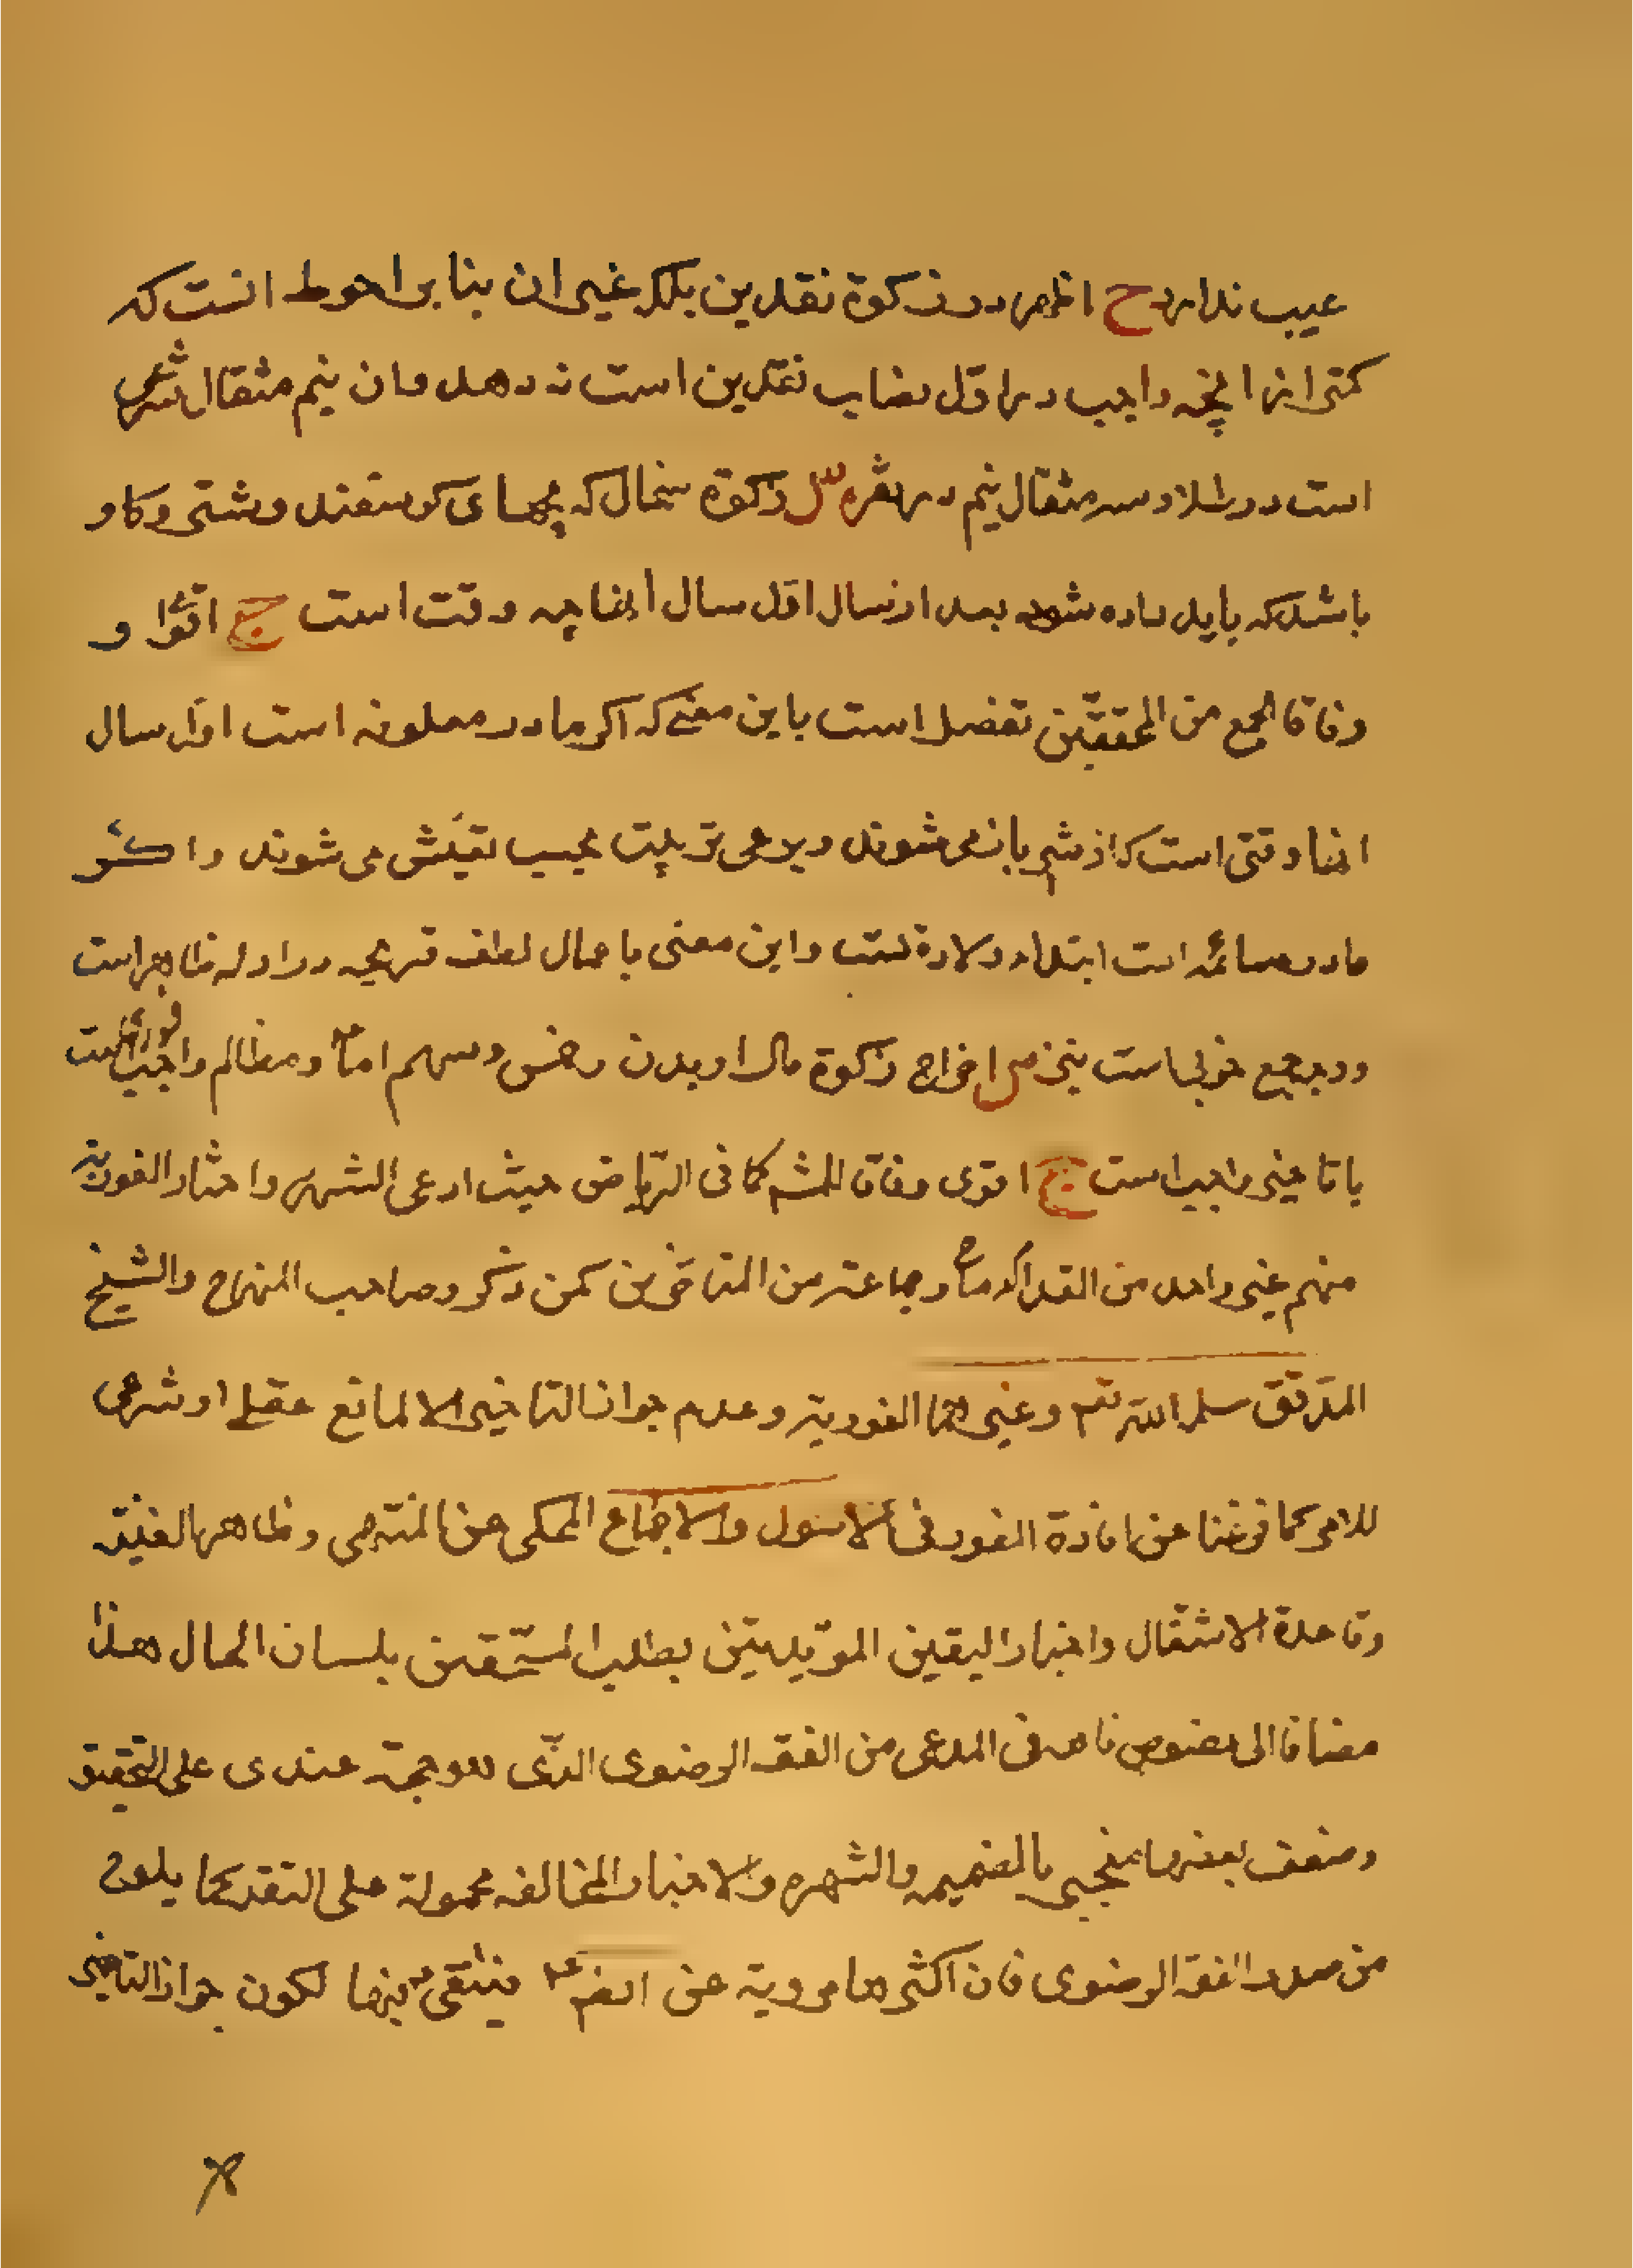 عیب ندارد ح اظهر در زکوة نقدین بلکه غیر ان بنا بر احوط انست که
کمتر از انچه واجب در اول نصاب نقدین است ندهد و ان نیم مثقال شرعی
است در طلا و سه مثقال نیم در نقره س زکوة سخال که بچهای کوسفند و شتر و کاو
باشد که باید داده شود بعد از سال اول سال انها چه وقت است ج اقوا و
وفاقا لجمع من المحققین تفصیل است باین معنی که اکر مادر معلوفه است اول سال
انها وقتی است که از شیر بازمی شوند و برعی تربیت بحسب تعیش می شوند و اکر
مادر سائمه است ابتداء ولادة است و این معنی باعمال لطف قریحه در ادله ظاهر است
و وجه جمع خوبی است نیز س اخراج زکوة مال او بدن و خمس و سهم امام و مظالم واجب فوری است
یا تاخیر واجب است ج اقوی وفاقا للمشهر کما فی الریاض حیث ادعی الشهره واختار الفوریة
منهم غیر واحد من القدماء وجماعة من المتاخرین کمن ذکر وصاحب المنهاج والشیخ
المدقق سلمه الله تعم وغیرهما الفوریة وعدم جواز التاخیر الا لمانع عقلی او شرعی
للامر کما فرغنا عن افادة الفور فی الاصول والاجماع المحکی عن المنتهی وظاهر الغنیة
وقاعدة الاشتغال واخبار الیقین المویدیتین بطلب المستحقین بلسان الحال هذا
مضافا الی نصوص ناهه فی المدعی من الفقه الرضوی الذی هو حجة عندی علی التحقیق
وضعف بعضها منجبر بالضمیمه والشهره والاخبار المخالفه محمولة علی التقیه کما یلوح
من صدر الفقه الرضوی فان اکثرها مرویة عن الصم ع ینتقی منها لکون جواز التاخیر